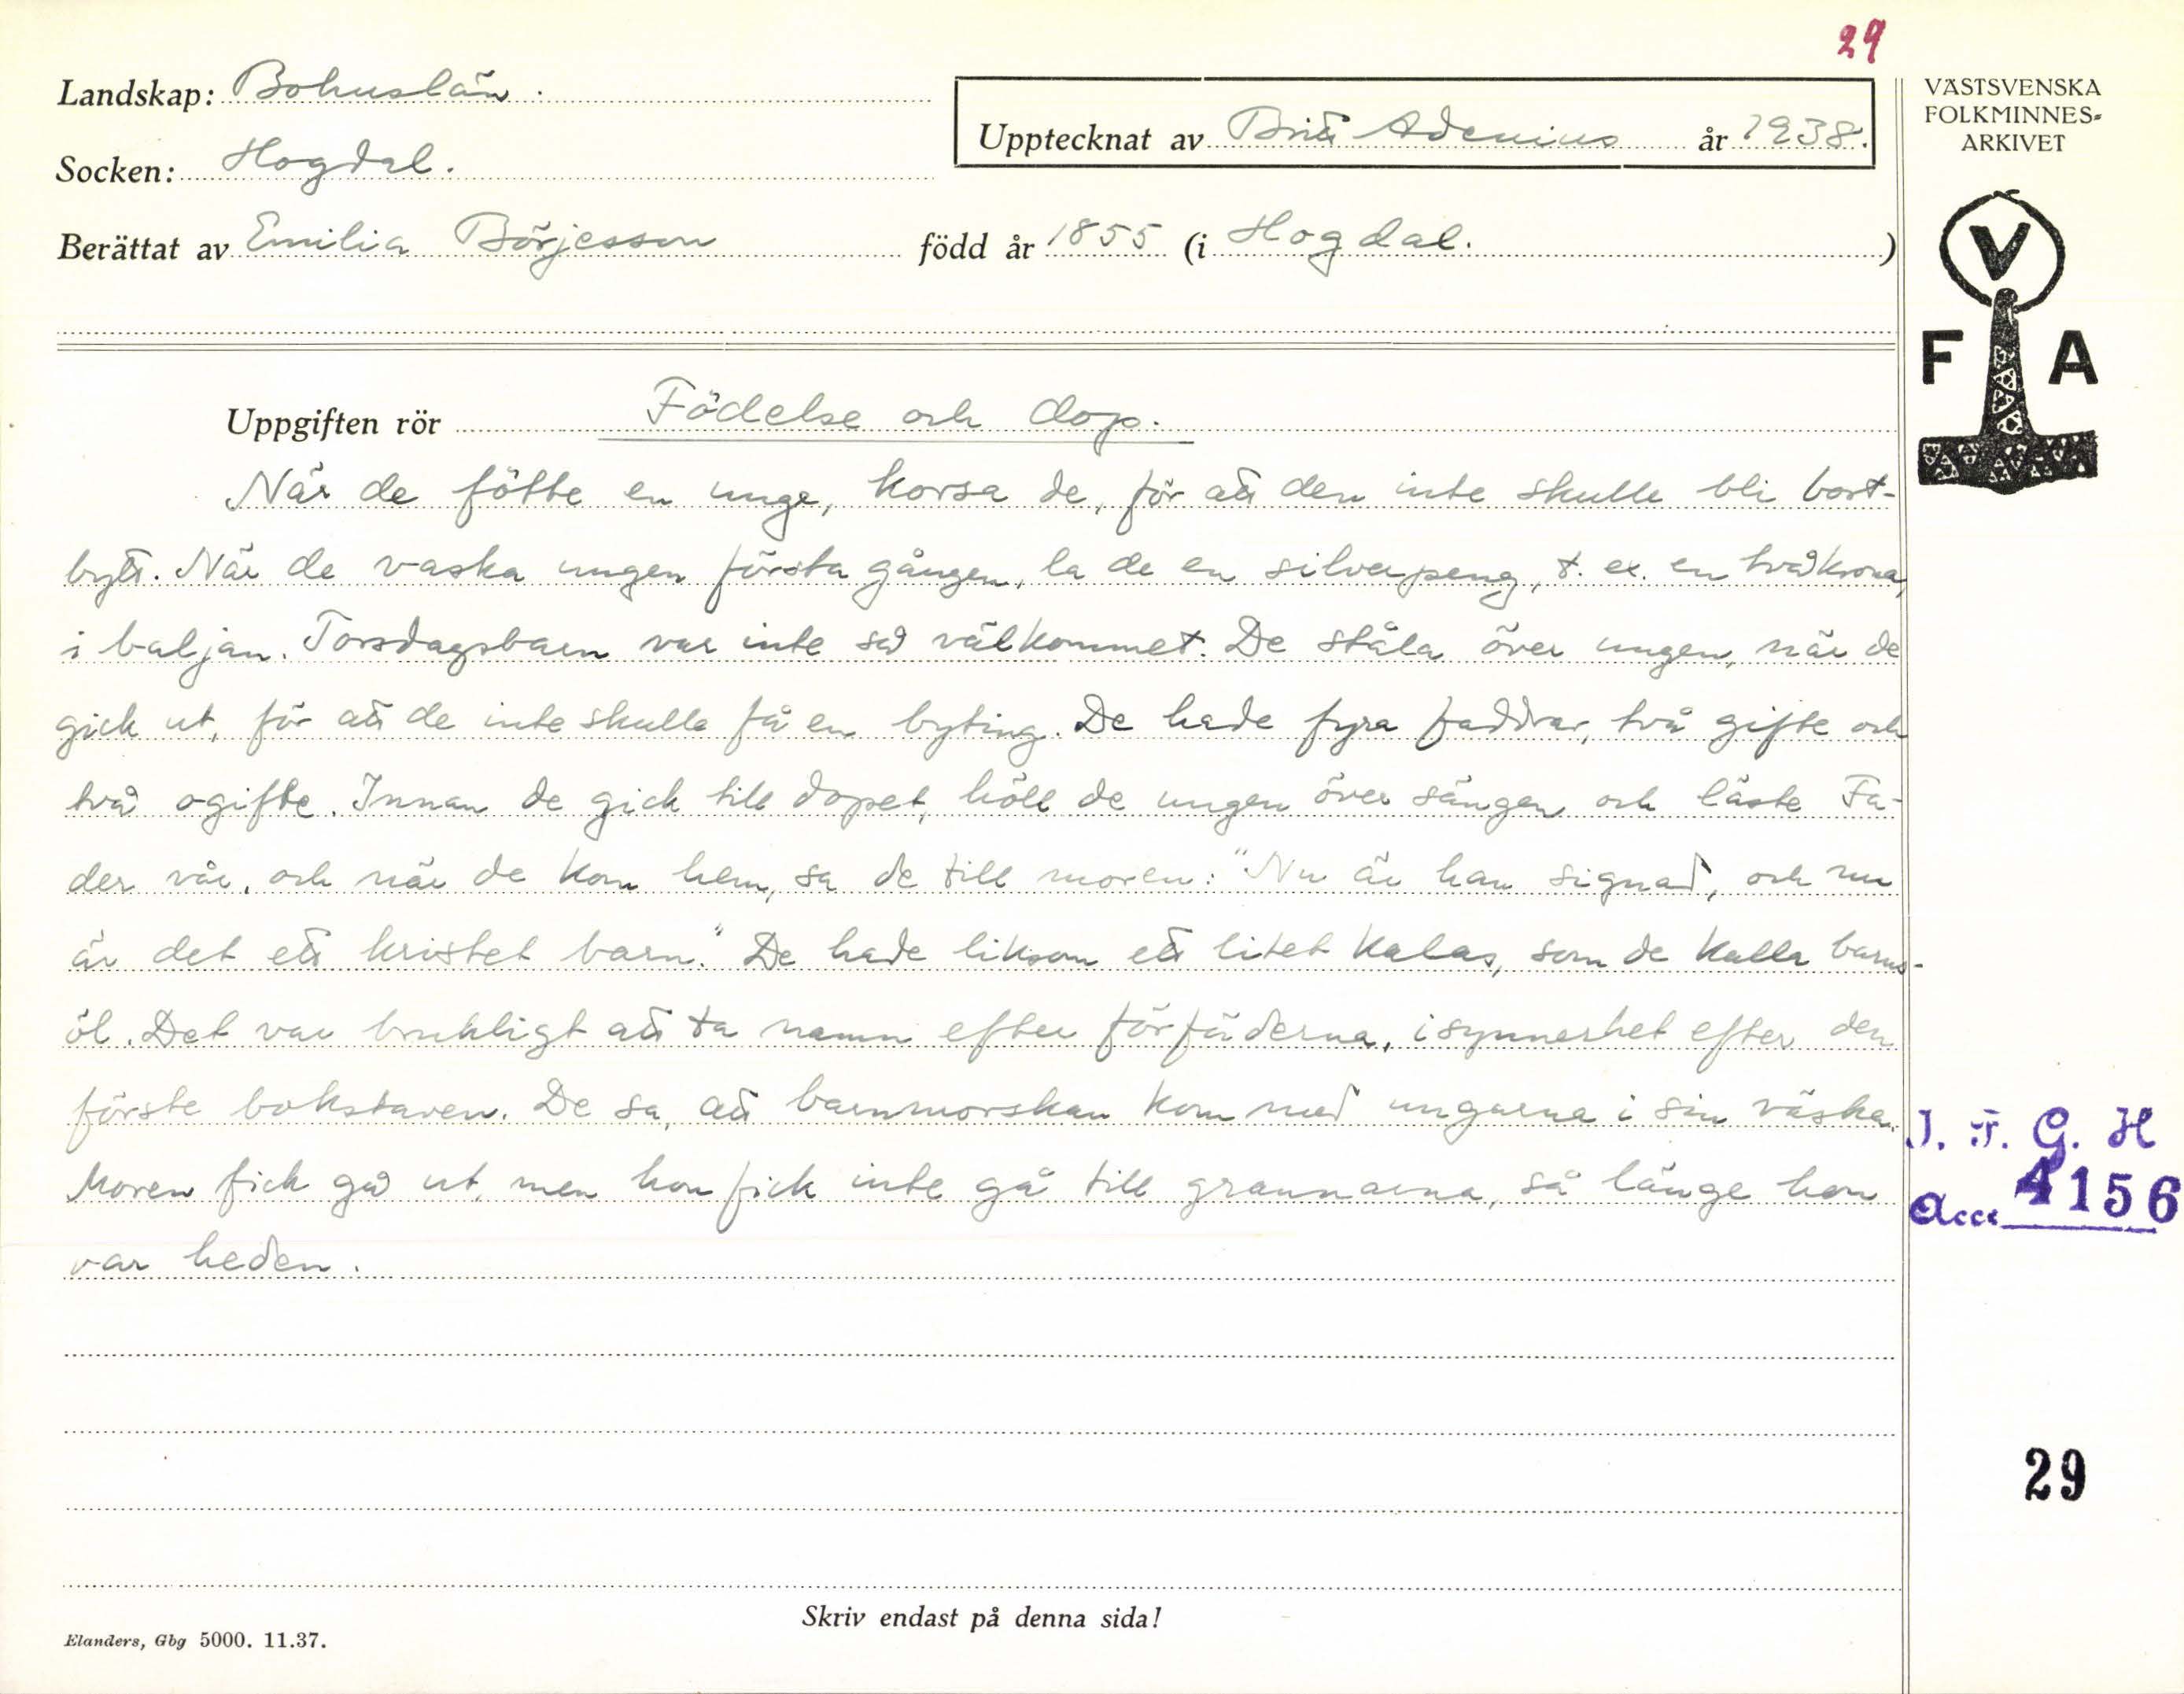 29
Landskap: Bohuslän.
Upptecknat av Britt Adenius år 1938.
Socken: Hogdal.
Berättat av Emilia Börjesson född år 1855 (i Hogdal.)
VÄSTSVENSKA
FOLKMINNES-
ARKIVET
V
F A
Uppgiften rör Födelse och dop.
När de fötte en unge, korsa de, för att den inte skulle bli bort-
bytt. När de vaska ungen första gången, la de en silverpeng, t. ex. en tvåkrona,
i baljan. Torsdagsbarn var inte så välkommet. De ståla över ungen, när de
gick ut, för att de inte skulle få en byting. De hade fyra faddrar, två gifte och
två ogifte. Innan de gick till dopet, höll de ungen över sängen och läste Fa-
der vår, och när de kom hem, sa de till moren: "Nu är han signad, och nu
är det ett kristet barn." De hade liksom ett litet kalas, som de kalla barns-
öl. Det var brukligt att ta namn efter förfäderna, i synnerhet efter den
förste bokstaven. De sa, att barnmorskan kom med ungarna i sin väska.
Moren fick gå ut, men hon fick inte gå till grannarna, så länge hon
var heden.
I. F. G. H
Acc. 4156
29
Skriv endast på denna sida!
Elanders, Gbg 5000. 11.37.